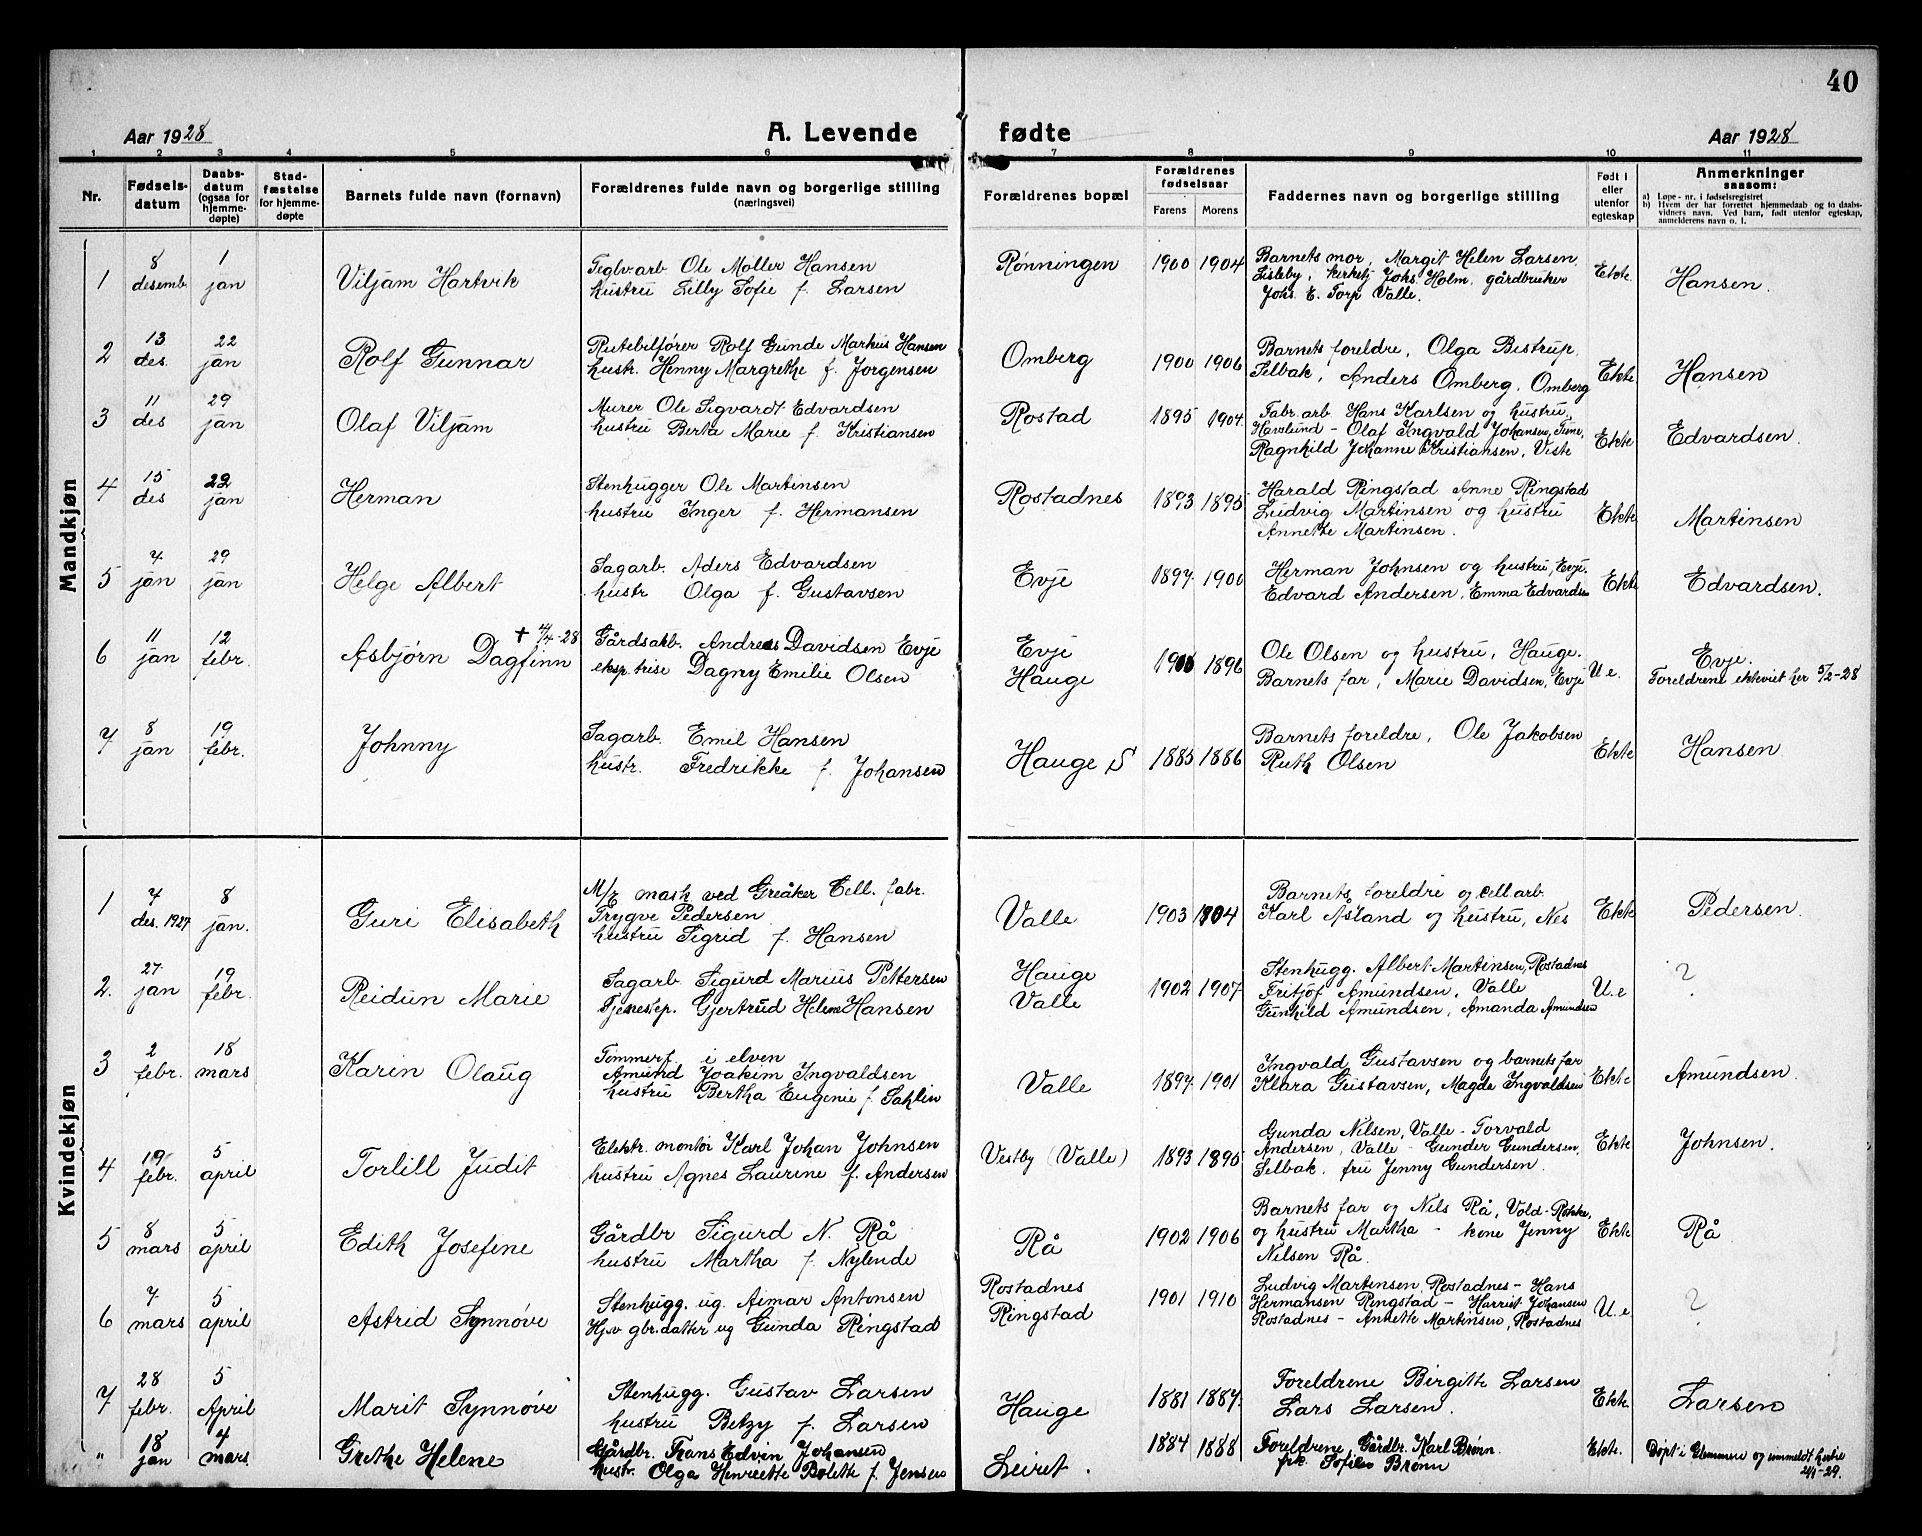 40
Aar 1928
A. Levende fødte
Aar 1928
1 2 3 4 5 6 7 8 9 10 11
Nr.
Fødsels-
datum
Daabs-
datum
(ogsaa for
hjemme-
døpte)
Stad-
fæstelse
for hjemme-
døpte
Barnets fulde navn (fornavn)
Forældrenes fulde navn og borgerlige stilling
(næringsvei)
Forældrenes bopæl
Forældrenes
fødselsaar
Farens Morens
Faddernes navn og borgerlige stilling
Født i
eller
utenfor
egteskap
Anmerkninger
saasom:
a) Løpe-nr. i fødselsregistret
b) Hvem der har forrettet hjemmedaab og to daabs-
vidners navn. Ved barn, født utenfor egteskap,
anmelderens navn o. l.
Mandkjøn
1
8
desemb
1
jan
Viljam Hartvik
Teglv.arb Ole Møller Hansen
hustru Lilly Sofie f. Larsen
Rønningen
1900 1904
Barnets mor, Margit Helen Larsen,
Lisleby, kirketj Johs. Holm, gårdbruker
Johs. E. Torp Valle.
Ekte
Hansen.
2
13
des.
22
jan
Rolf Gunnar
Rutebilfører Rolf Gunde Markus Hansen
hustr. Henny Margrethe f. Jorgensen
Omberg
1900 1906
Barnets foreldre, Olga Bistrup,
Selbak, Anders Omberg, Omberg
Ekte
Hansen
3
11
des
29
jan
Olaf Viljam
Murer Ole Sigvardt Edvardsen
hustru Berta Marie f. Kristiansen
Rostad
1895 1904
Fabr.arb. Hans Karlsen og hustru,
Havslund - Olaf Ingvald Johansen, Tune,
Ragnhild Johanne Kristiansen, Viste
Ekte
Edvardsen.
4
15
des
22
jan
Herman
Stenhugger Ole Martinsen
hustru Inger f. Hermansen
Rostadnes
1893 1895
Harald Ringstad Anne Ringstad
Ludvig Martinsen og hustru
Annette Martinsen.
Ekte
Martinsen
5
4
jan
29
jan
Helge Albert
Sagarb. Aders Edvardsen
hustr Olga f. Gustavsen
Evje
1897 1900
Herman Johnsen og hustru, Evje.
Edvard Andersen, Emma Edvardsen
Ekte
Edvardsen.
6
11
jan
12
febr.
Asbjørn Dagfinn
† 4/4-28
Gårdsarb. Andreas Davidsen Evje
eksp.trise Dagny Emilie Olsen
Evje
Hauge
1896
Ole Olsen og hustru, Hauge.
Barnets far, Marie Davidsen, Evje
U e.
Evje.
Foreldrene ekteviet her 5/2-28
7
8
jan
19
febr.
Johnny
Sagarb. Emil Hansen
hustr. Fredrikke f. Johansen
Hauge S
1885 1886
Barnets foreldre, Ole Jakobsen
Ruth Olsen
Ekte
Hansen
Kvindekjøn
1
4
des. 1927
8
jan.
Guri Elisabeth
mask ved Greåker Cell. fabr.
Trygve Pedersen
hustru Sigrid f. Hansen
Valle
1903 1904
Barnets foreldre og cell arb.
Karl Åsland og hustru, Nes
Ekte
Pedersen.
2.
27
jan
19
febr.
Reidun Marie
Sagarb Sigurd Marius Pettersen
Tjenestep. Gjertrud Helene Hansen
Hauge
Valle
1902 1907
Stenhugg. Albert Martinsen, Rostadnes
Fritjof Amundsen, Valle
Gunhild Amundsen, Amanda Amundsen
U.e
?
3
2
febr.
18
mars
Karin Olaug
Tømmerf. i elven
Amund Joakim Ingvaldsen
hustru Bertha Eugenie f Sahlin
Valle
1897 1901
Ingvald Gustavsen og barnets far
Klara Gustavsen, Magda Ingvaldsen
Ekte
Amundsen.
4
19
febr.
5
april
Torlill Judit
Elektr. montør Karl Johan Johnsen
hustru Agnes Laurine f. Andersen
Vestby (Valle)
1893 1895
Gunda Nilsen, Valle - Torvald
Andersen, Valle - Gunder Gundersen,
Selbak, fru Jenny Gundersen.
Ekte
Johnsen.
5
8
mars
5
april
Edith Josefine
Gårdbr Sigurd N. Rå
hustru Martha f. Nylende
Rå
1902 1906
Barnets far og Nils Rå, Vold-Rokke,
og hustru Martha - kone Jenny
Nilsen Rå.
Ekte
Rå.
6
7
mars
5
april
Astrid Synnøve
Stenhugg. ug. Aimar Antonsen
Hjv gbr.datter ug Gunda Ringstad
Rostadnes
Ringstad
1901 1910
Ludvig Martensen, Rostadnes - Hans
Hermansen Ringstad - Harriet Johansen
Rostadnes - Annette Martinsen, Rostadnes
U.e.
?
7
28
febr.
5
April
Marit Synnøve
Stenhugg. Gustav Larsen
hustru Betzy f. Larsen
Hauge
1881 1887
Foreldrene Birgitte Larsen
Lars Larsen.
Ekte
Larsen
"
18
jan
4
mars
Grethe Helene
Gårdbr. Frans Edvin Johansen
hustr. Olga Henriette Bolette f. Jensen
Leiret.
1884 1888
Foreldrene, Gårdbr. Karl Brønn.
frk. Brønn
Ekte.
Døpt i Glemmen og innmeldt